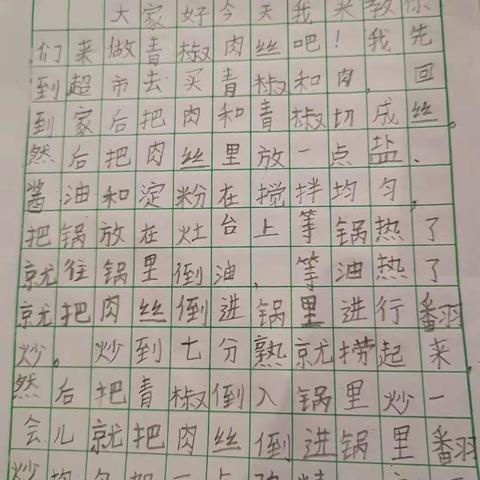 大家好今天我来教你
们来做青椒肉丝吧！我先
到超市去买青椒和肉，回
到家后把肉和青椒切成丝。
然后把肉丝里放一点盐、
酱油和淀粉在搅拌均匀，
把锅放在灶台上等锅热了
就往锅里倒油，等油热了
就把肉丝倒进锅里进行翻
炒。炒到七分熟就捞起来，
然后把青椒倒入锅里炒一
会儿就把肉丝倒进锅里翻
炒均匀加一点鸡精